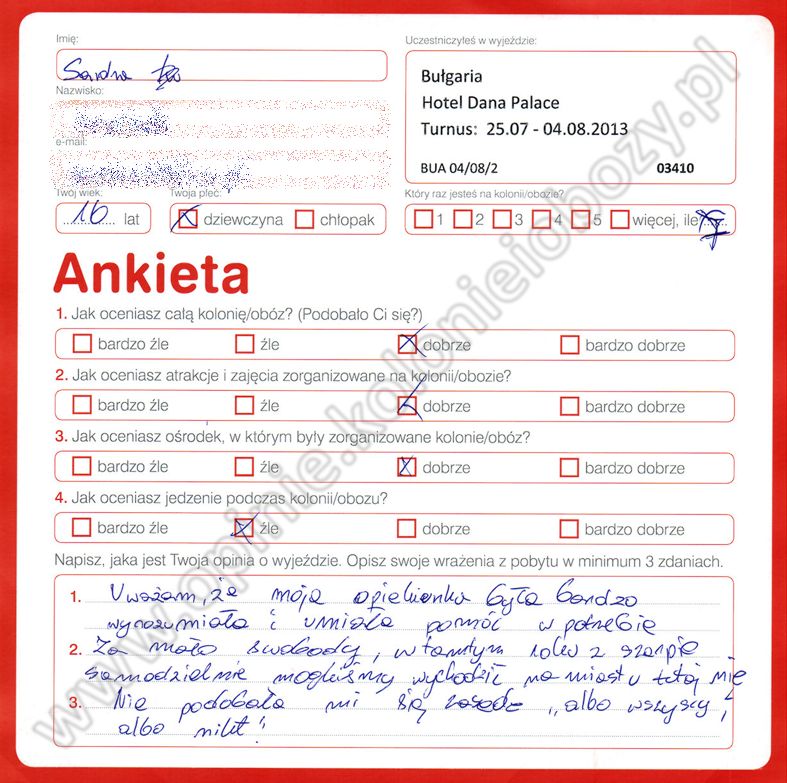 Imię:
Uczestniczyłeś w wyjeździe:
Sandra
Bułgaria
Hotel Dana Palace
Turnus: 25.07 - 04.08.2013
BUA 04/08/2 03410
Nazwisko:
e-mail:
Twój wiek: Twoja płeć:
Który raz jesteś na kolonii/obozie?
16 lat dziewczyna chłopak
1 2 3 4 5 więcej, ile
Ankieta
1. Jak oceniasz całą kolonię/obóz? (Podobało Ci się?)
bardzo źle źle dobrze bardzo dobrze
2. Jak oceniasz atrakcje i zajęcia zorganizowane na kolonii/obozie?
bardzo źle źle dobrze bardzo dobrze
3. Jak oceniasz ośrodek, w którym były zorganizowane kolonie/obóz?
bardzo źle źle dobrze bardzo dobrze
4. Jak oceniasz jedzenie podczas kolonii/obozu?
bardzo źle źle dobrze bardzo dobrze
Napisz, jaka jest Twoja opinia o wyjeździe. Opisz swoje wrażenia z pobytu w minimum 3 zdaniach.
1. Uważam, że moja opiekunka była bardzo
wyrozumiała i umiała pomóc w potrzebie
2. Za mało swobody, w tamtym roku z
samodzielnie mogliśmy wychodzić na miasto tutaj nie
3. Nie podobała mi się zasada „albo wszyscy,
albo nikt"
www.opinie.kolonieiobozy.pl